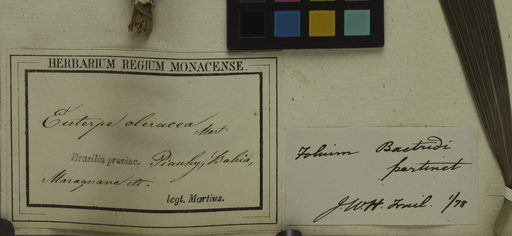 HERBARIUM REGIUM MONACENSE.
Euterpe oleracea Mart
Brasilia provinc. Piauhy, Bahia,
Maragnana etc.
legt. Martius.
Folium Bactridi
pertinet
J.W.H. Trail. 1/78